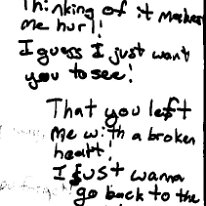 Thinking of it makes
me hurl!
I guess I just want
you to see!
That you left
me with a broken
heart!
I just wanna
go back to the